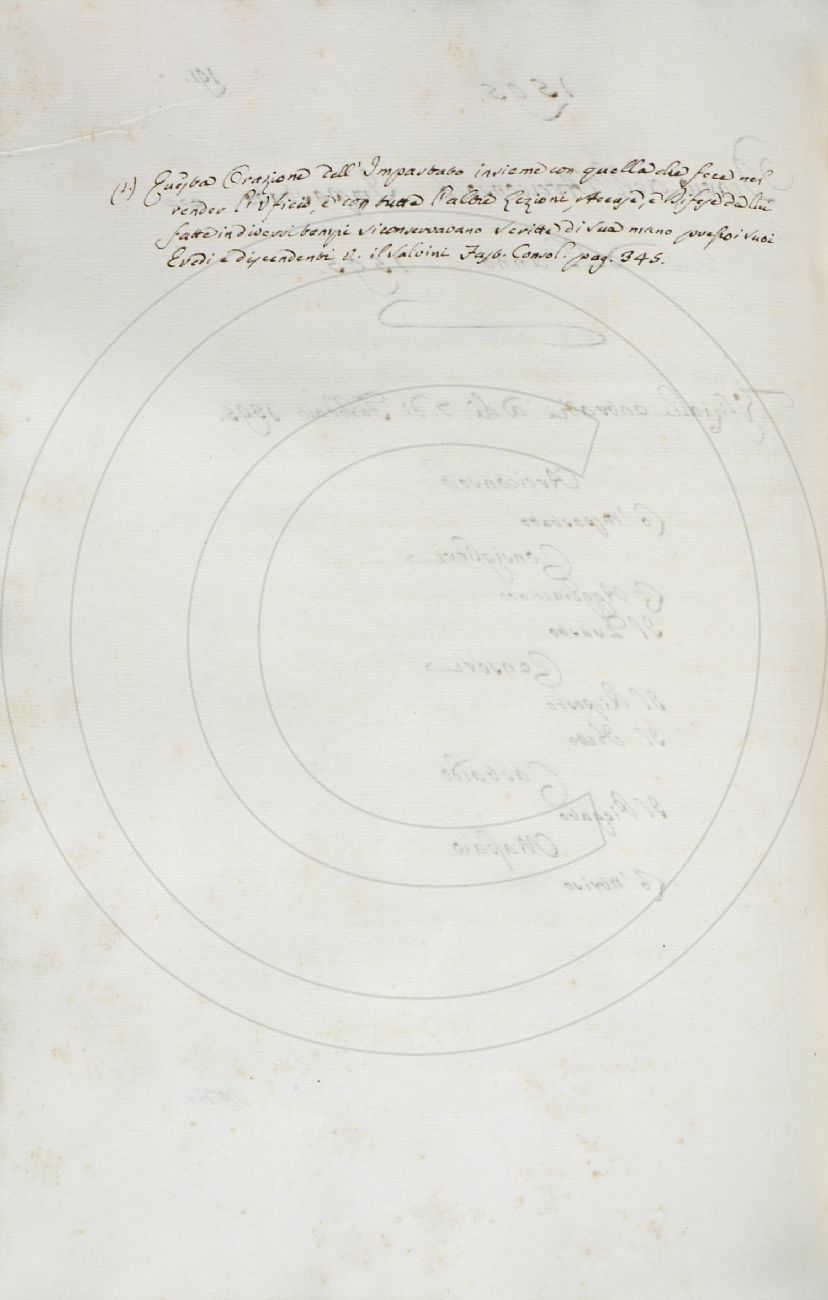 (1) Questa Orazione dell' Impastato insieme con quella che fece nel
render l'Uficio, e con tutte l'altre Lezioni, Accuse, e Difese da lui
fatte in diversi tempi si conservavano scritte di sua mano presso i suoi
Eredi e discendenti v. il Salvini Fast. Consol. pag. 345.